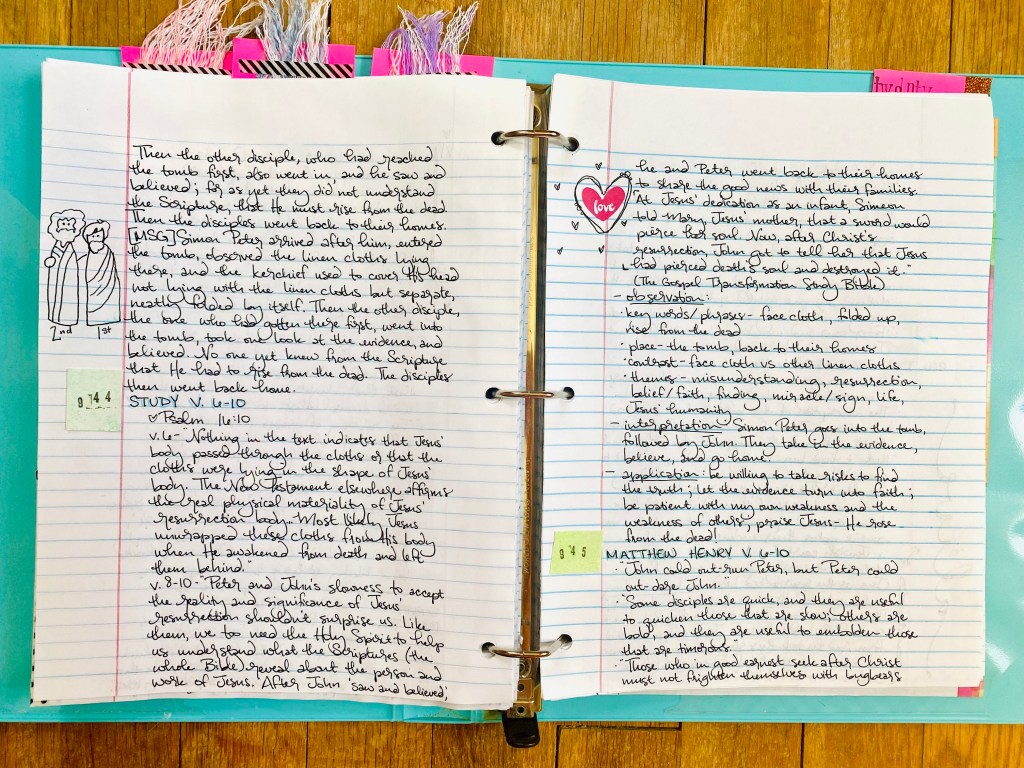 Then the other disciple, who had reached
the tomb first, also went in, and he saw and
believed; for as yet they did not understand
the Scripture, that He must rise from the dead.
Then the disciples went back to their homes.
[MSG] Simon Peter arrived after him, entered
the tomb, observed the linen cloths lying
there, and the kerchief used to cover His head
not lying with the linen cloths but separate,
neatly folded by itself. Then the other disciple,
the one who had gotten there first, went into
the tomb, took one look at the evidence, and
believed. No one yet knew from the Scripture
that He had to rise from the dead. The disciples
then went back home.
2nd 1st
9 44
STUDY V. 6-10
♡ Psalm 16:10
v.6- "Nothing in the text indicates that Jesus'
body passed through the cloths or that the
cloths were lying in the shape of Jesus'
body. The New Testament elsewhere affirms
the real physical materiality of Jesus'
resurrection body... Most likely Jesus
unwrapped these cloths from His body
when He awakened from death and left
them behind."
v. 8-10- "Peter and John's slowness to accept
the reality and significance of Jesus'
resurrection shouldn't surprise us. Like
them, we to need the Holy Spirit to help
us understand what the Scriptures (the
whole Bible) reveal about the person and
work of Jesus. After John 'saw and believed,'
love
he and Peter went back to their homes
to share the good news with their families.
"At Jesus' dedication as an infant, Simeon
told Mary, Jesus' mother, that a sword would
pierce her soul. Now, after Christ's
resurrection, John got to tell her that Jesus
had pierced death's soul and destroyed it."
(The Gospel Transformation Study Bible)
- observation:
· key words/phrases - face cloth, folded up,
rise from the dead
· place - the tomb, back to their homes
· contrast - face cloth vs other linen cloths
· themes - misunderstanding, resurrection,
belief/faith, finding, miracle/sign, life,
Jesus' humanity
- interpretation: Simon Peter goes into the tomb,
followed by John. They take in the evidence,
believe, and go home.
- application: be willing to take risks to find
the truth; let the evidence turn into faith;
be patient with my own weakness and the
weakness of others; praise Jesus - He rose
from the dead!
9 45
MATTHEW HENRY V. 6-10
· "John could out-run Peter, but Peter could
out-dare John."
· "Some disciples are quick, and they are useful
to quicken those that are slow; others are
bold, and they are useful to embolden those
that are timorous."
· "Those who in good earnest seek after Christ
must not frighten themselves with bugbears